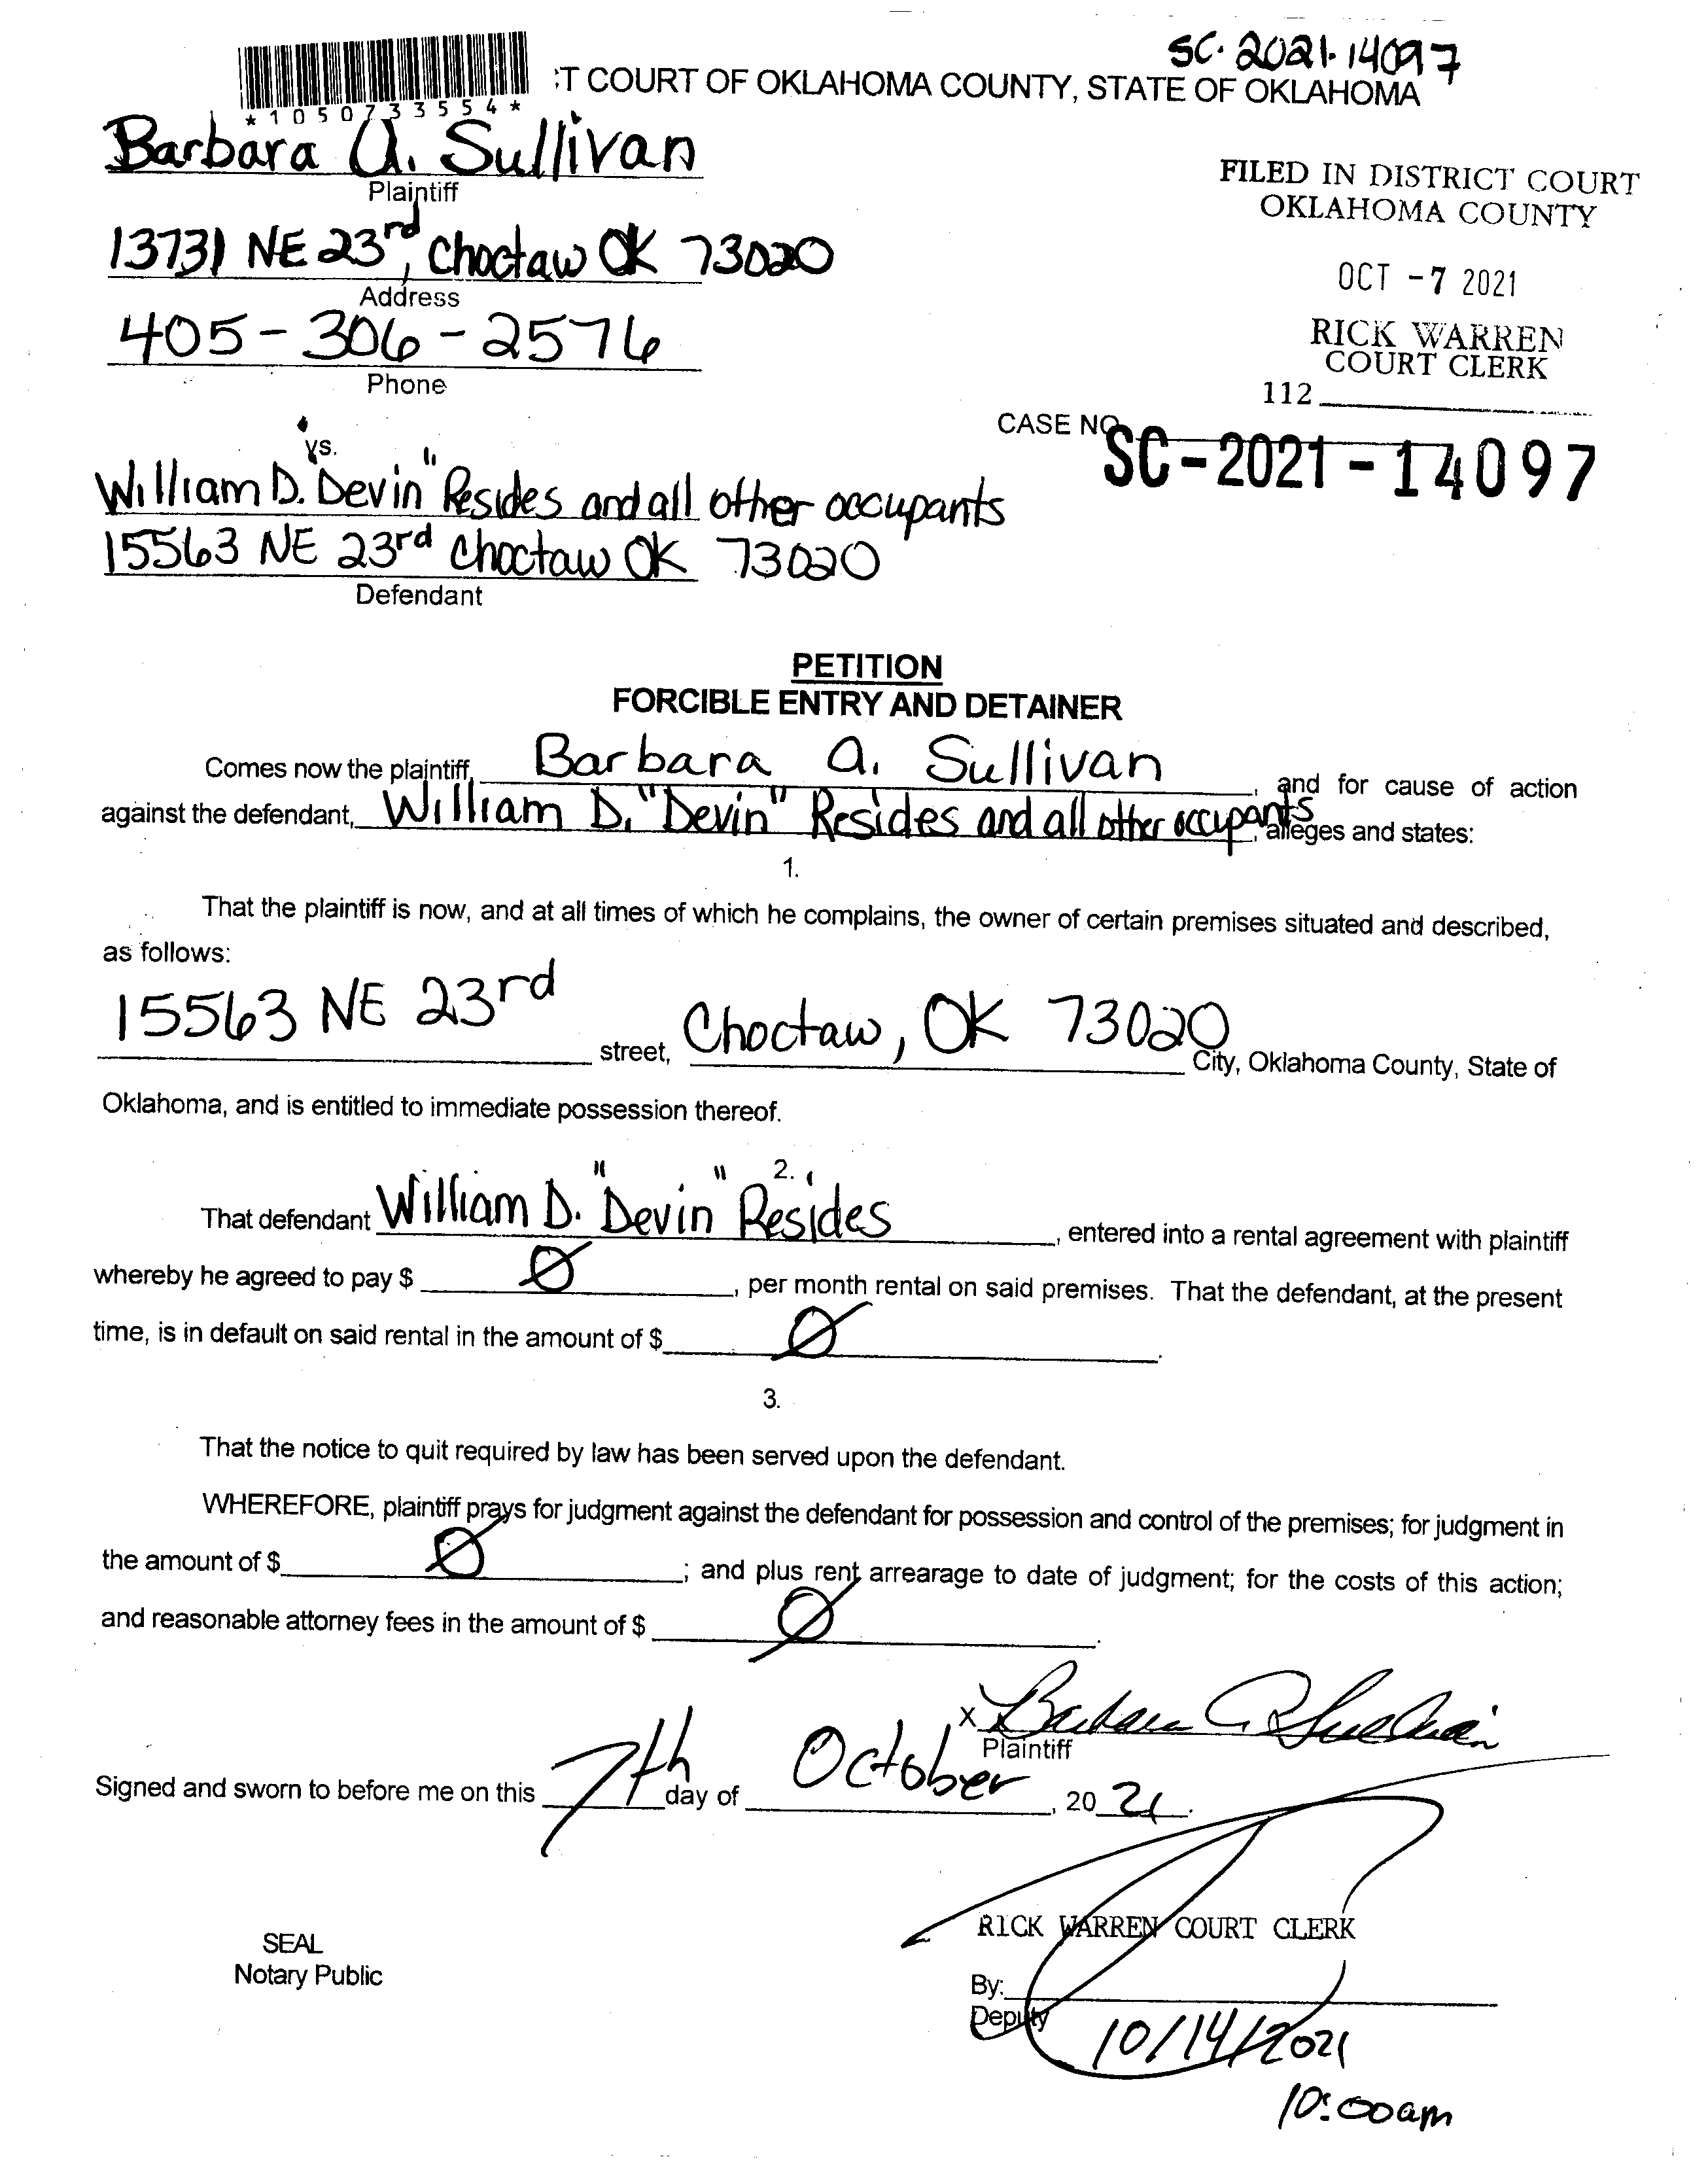 SC-2021-14097
:T COURT OF OKLAHOMA COUNTY, STATE OF OKLAHOMA
*1050733554*
Barbara A. Sullivan
Plaintiff
FILED IN DISTRICT COURT
OKLAHOMA COUNTY
13731 NE 23rd, Choctaw OK 73020
Address
OCT -7 2021
405-306-2576
Phone
RICK WARREN
COURT CLERK
112
CASE NO
SC-2021-14097
vs.
William D. "Devin" Resides and all other occupants
15563 NE 23rd Choctaw OK 73020
Defendant
PETITION
FORCIBLE ENTRY AND DETAINER
Comes now the plaintiff, Barbara A. Sullivan, and for cause of action
against the defendant, William D. "Devin" Resides and all other occupants, alleges and states:
1.
That the plaintiff is now, and at all times of which he complains, the owner of certain premises situated and described,
as follows:
15563 NE 23rd street, Choctaw, OK 73020 City, Oklahoma County, State of
Oklahoma, and is entitled to immediate possession thereof.
2.
That defendant William D. "Devin" Resides, entered into a rental agreement with plaintiff
whereby he agreed to pay $ Ø, per month rental on said premises. That the defendant, at the present
time, is in default on said rental in the amount of $ Ø.
3.
That the notice to quit required by law has been served upon the defendant.
WHEREFORE, plaintiff prays for judgment against the defendant for possession and control of the premises; for judgment in
the amount of $ Ø; and plus rent arrearage to date of judgment; for the costs of this action;
and reasonable attorney fees in the amount of $ Ø.
X Barbara A Sullivan
Plaintiff
Signed and sworn to before me on this 7th day of October, 2021.
RICK WARREN COURT CLERK
SEAL
Notary Public
By:
Deputy
10/14/2021
10:00am